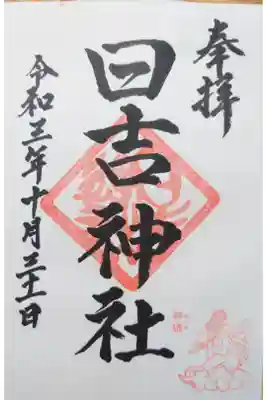 奉拝
日吉神社
令和三年十月三十一日